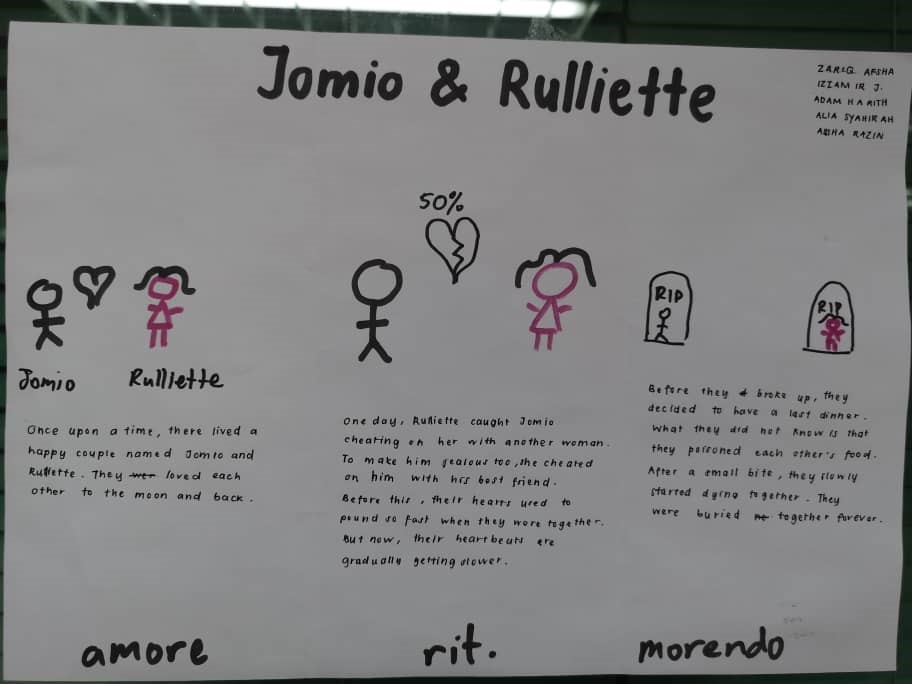 Jomio & Rulliette
ZARIQ AFSHA
IZZAMIR J.
ADAM HARITH
ALIA SYAHIRAH
AISHA RAZIN
Jomio
Rulliette
Once upon a time, there lived a
happy couple named Jomio and
Rulliette. They wer loved each
other to the moon and back.
amore
50%
One day, Rulliette caught Jomio
cheating on her with another woman.
To make him jealous too, she cheated
on him with his best friend.
Before this, their hearts used to
pound so fast when they were together.
But now, their heartbeats are
gradually getting slower.
rit.
RIP
RIP
Before they broke up, they
decided to have a last dinner.
What they did not know is that
they poisoned each other's food.
After a small bite, they slowly
started dying together. They
were buried ne together forever.
morendo